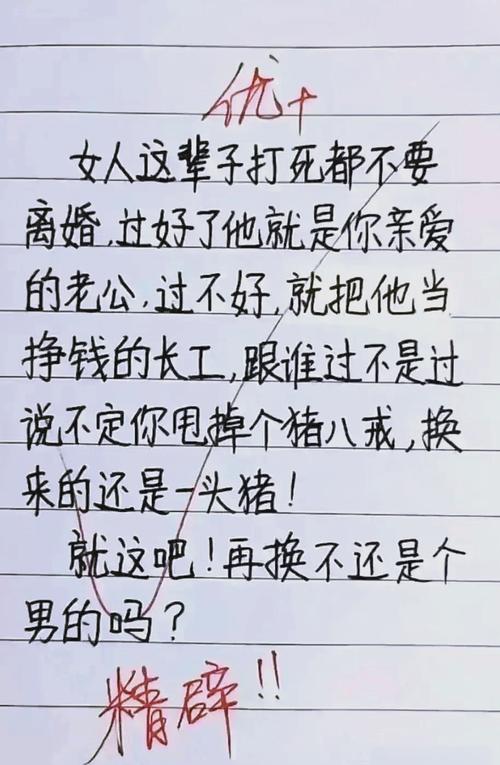 优+
女人这辈子打死都不要
离婚,过好了他就是你亲爱
的老公,过不好,就把他当
挣钱的长工,跟谁过不是过
说不定你甩掉个猪八戒,换
来的还是一头猪!
就这吧!再换不还是个
男的吗?
精辟!!